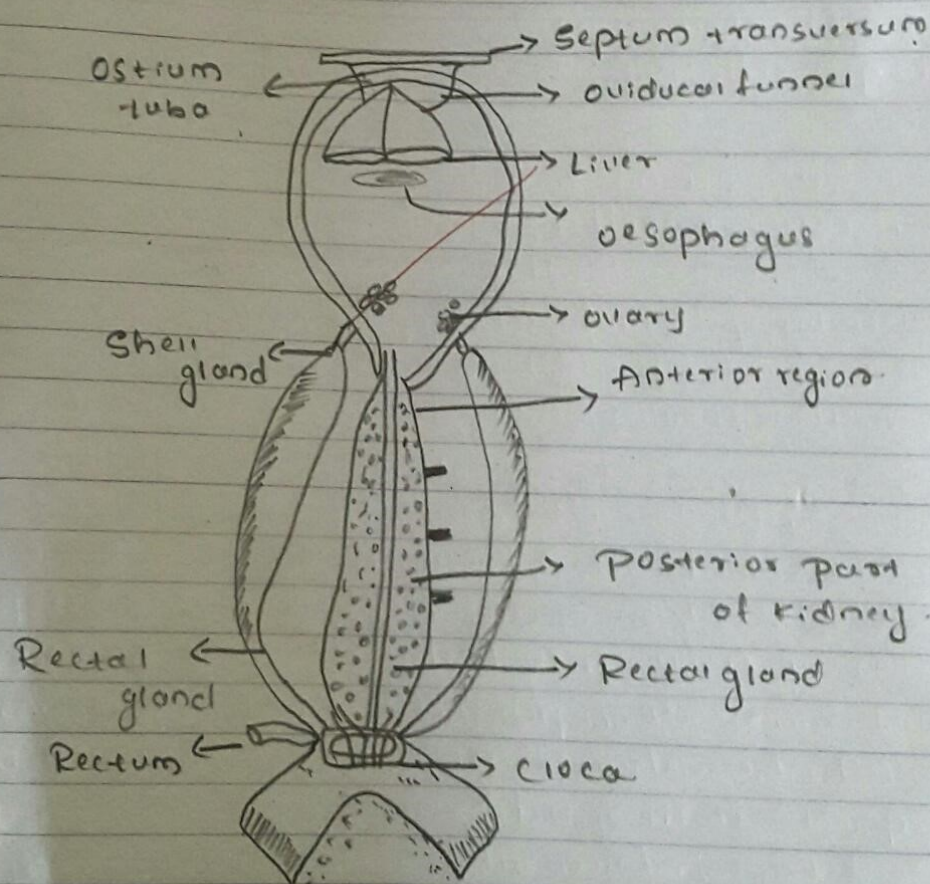 Septum transversum
Ostium
tuba
oviducal funnel
Liver
oesophagus
ovary
Shell
gland
Anterior region
Posterior part
of kidney
Rectal
gland
Rectal gland
Rectum
cloca